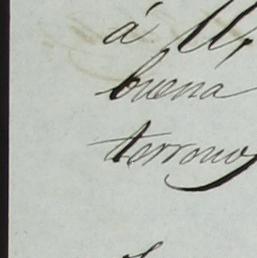 á U.
buena
terreno